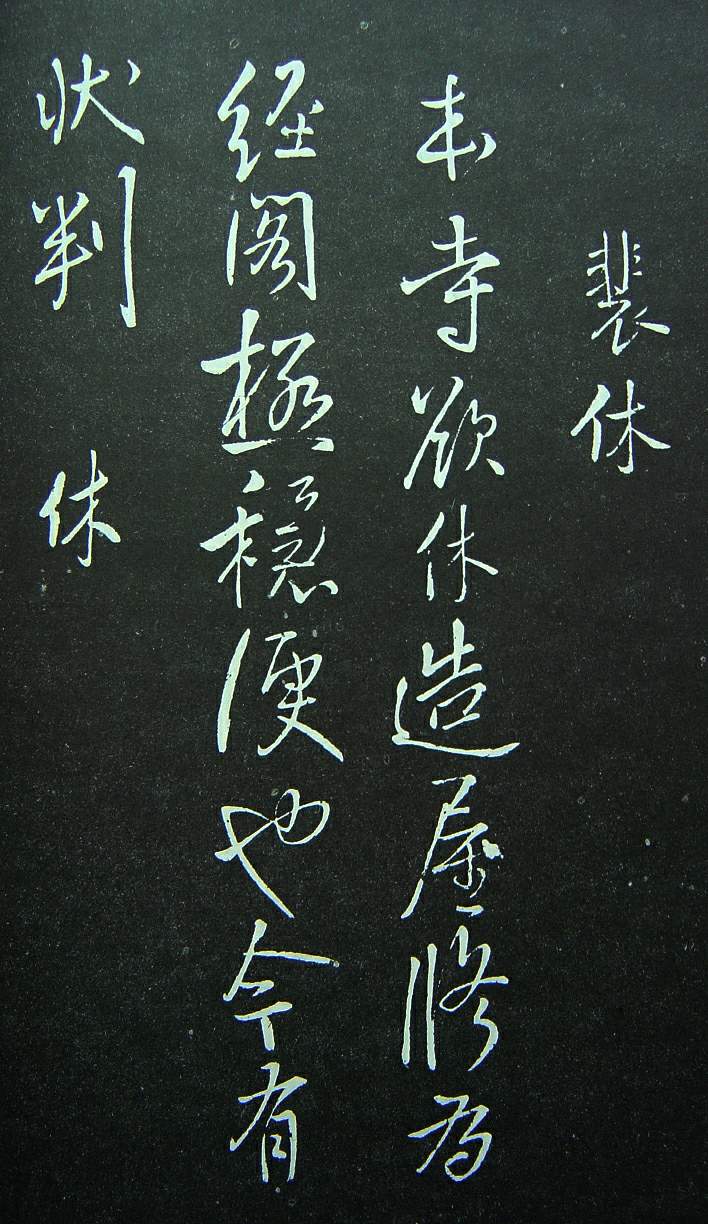 裴休
本寺欲休造屋修為
經閣極穩便也今有
狀判 休